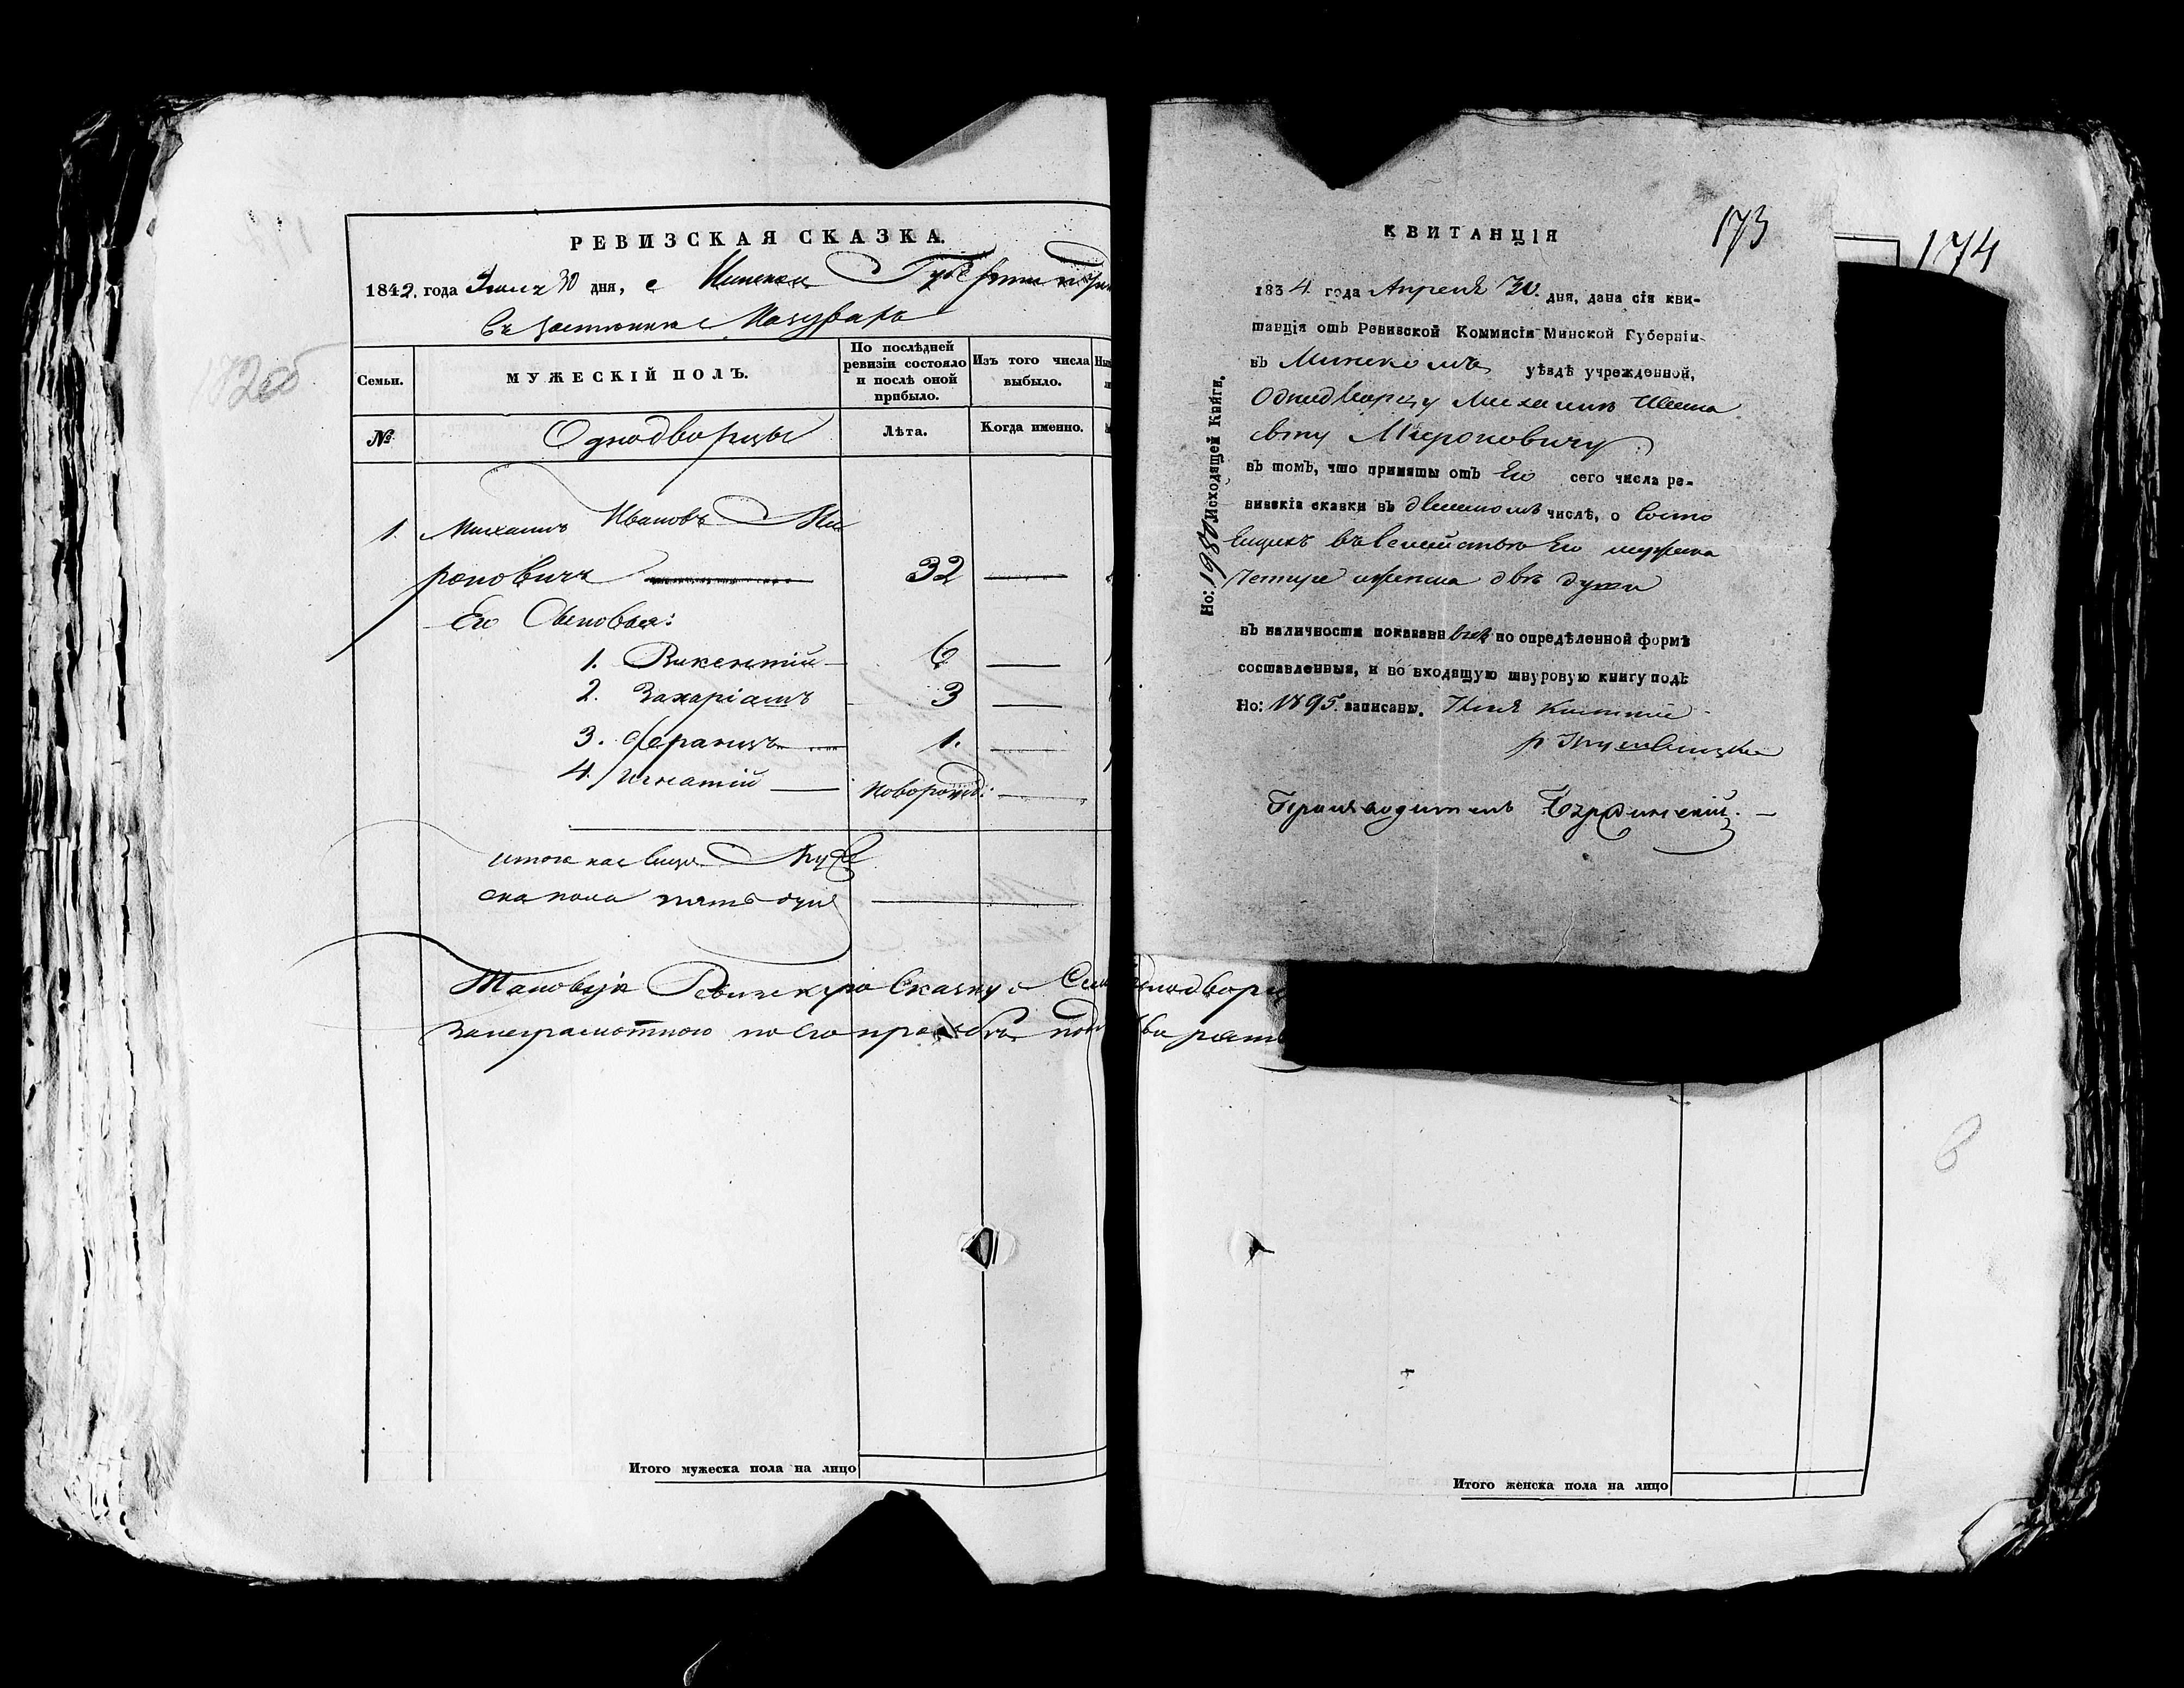 172об
РЕВИЗСКАЯ СКАЗКА.
1842. года Июля 30 дня, Минской Губерніи
въ застѣнкѣ Мачурахъ
Семьи.
МУЖЕСКІЙ ПОЛЪ.
По послѣдней ревизіи состояло и послѣ оной прибыло.
Изъ того числа выбыло.
№
Однодворцы
Лѣта.
Когда именно.
1. Михаилъ Ивановъ Ми
роновичъ 32
Его Сыновья:
1. Викентій 6
2. Захаріашъ 3
3. Францъ 1.
4. Игнатій новорожд:
итого на лицо Муже
ска пола пять душъ
Таковую Ревизкую Сказку
Занеграмотного по его прозбѣ
Итого мужеска пола на лицо
173
КВИТАНЦІЯ
1834. года Апреля 30. дня, дана сія кви-
танція отъ Ревизской Коммисіи Минской Губерніи
въ Минскомъ уѣздѣ учрежденной,
Однодворцу Михаилу Ивано
вичу Мироновичу
въ томъ, что приняты отъ Его сего числа ре-
визскія сказки въ двойномъ числѣ, о Состо
ящихъ въ Семействѣ Его мужеска
четыре женска двѣ души
въ наличности показаны по опредѣленной формѣ
составленныя, и во входящую шнуровую книгу подъ
Но: 1895. записаны.
Производитель
Но: 1980 Исходящей Книги.
174
Итого женска пола на лицо